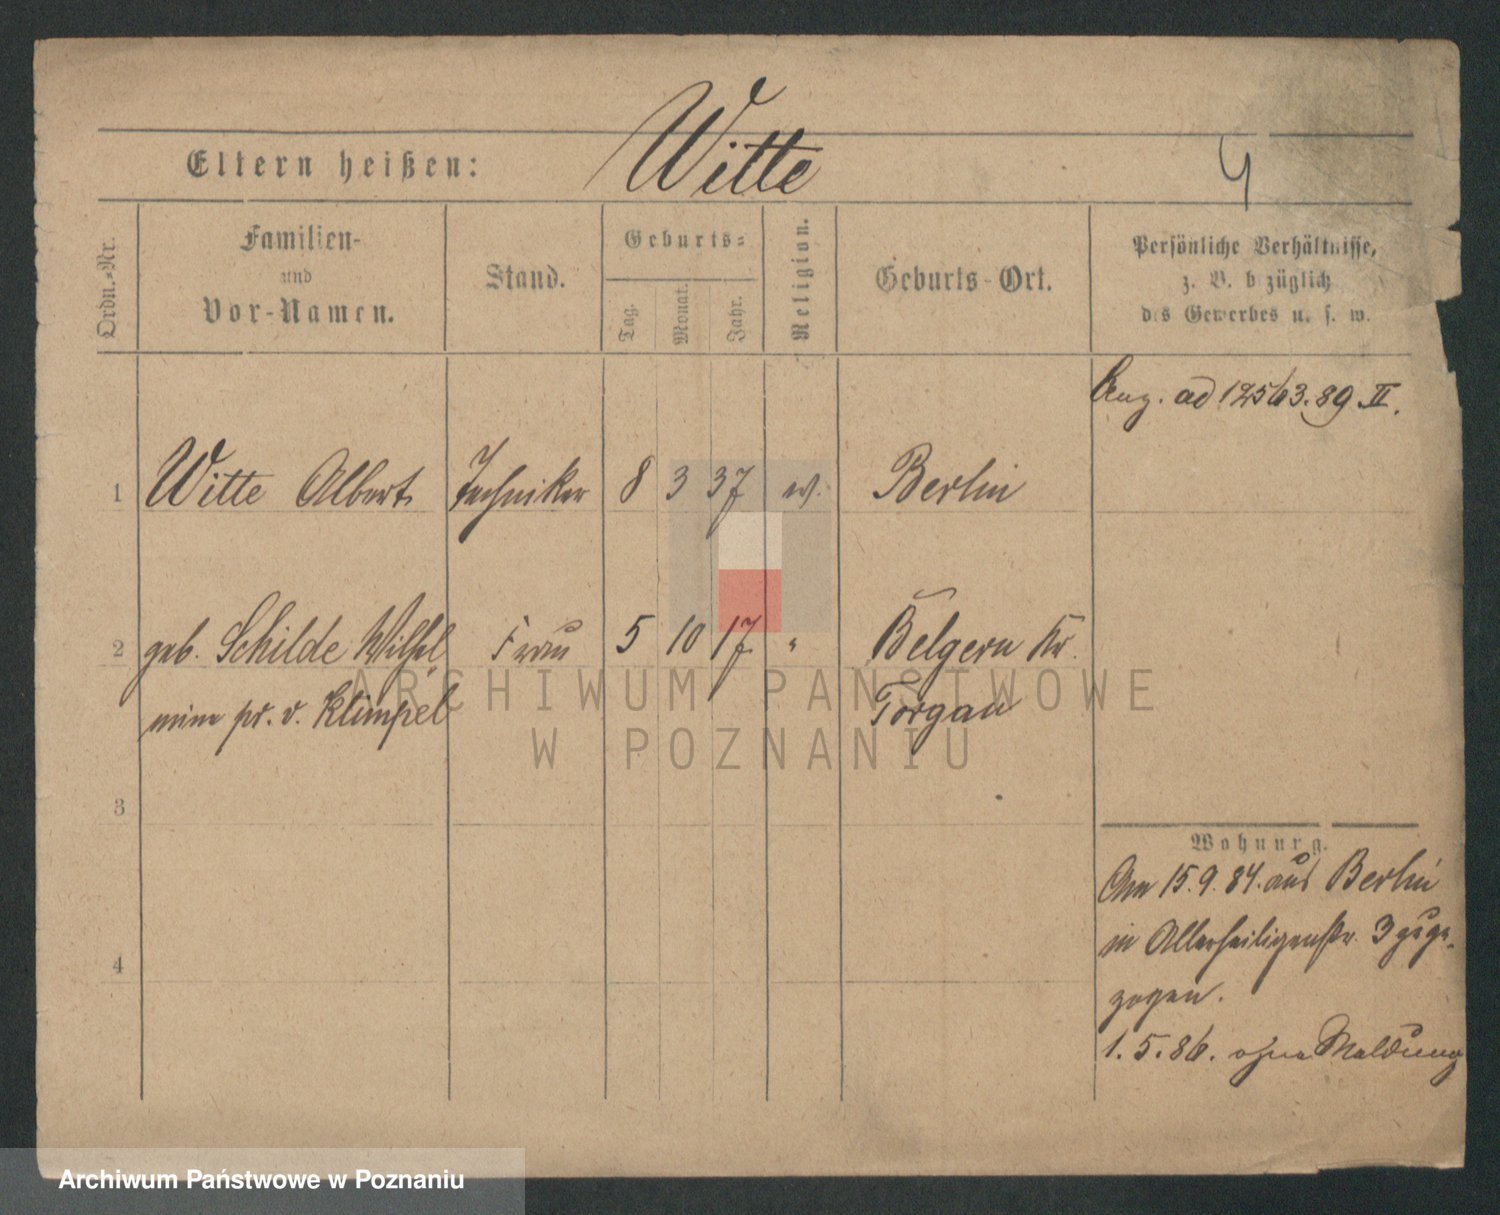 Witte
Eltern heißen:
4
Ordn.-Nr.
Familien-
und
Vor-Namen.
Stand.
Geburts-
Tag.
Monat.
Jahr.
Religion.
Geburts-Ort.
Persönliche Verhältnisse,
z. B. bezüglich
des Gewerbes u. s. w.
ad 12563.89 II.
1 Witte Albert Techniker 8 3 37 ev. Berlin
2 geb. Schilde Wilhel Frau 5 10 17 " Belgern Kr.
mine pr. v. Klimpel Torgau
3
Wohnung.
Am 15.9.84. aus Berlin
in Allerheiligenstr. 3 zuge-
zogen.
4
1.5.86. ohne Meldung
ARCHIWUM PAŃSTWOWE
W POZNANIU
Archiwum Państwowe w Poznaniu